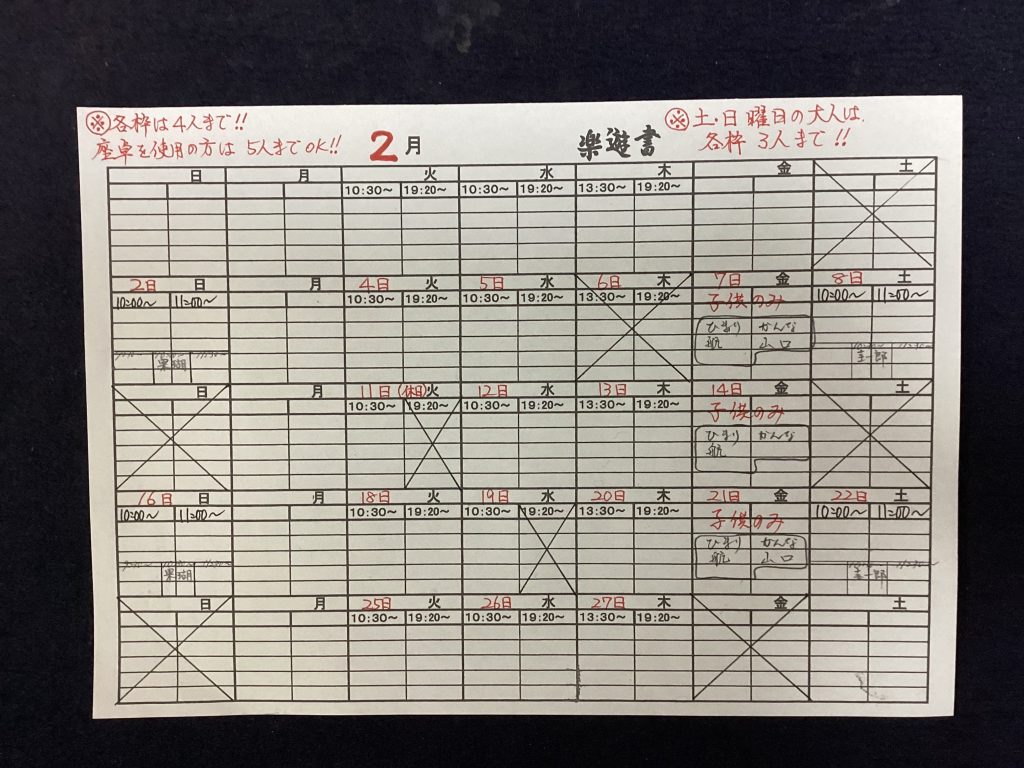 ※各枠は4人まで!!
座卓を使用の方は 5人までOK!!
2月
楽遊書
※土・日曜日の大人は、
各枠 3人まで!!
日 月 火 水 木 金 土
10:30～ 19:20～ 10:30～ 19:20～ 13:30～ 19:20～
2日 日 月 4日 火 5日 水 6日 木 7日 金 8日 土
10:00～ 11:00～ 10:30～ 19:20～ 10:30～ 19:20～ 13:30～ 19:20～ 子供のみ 10:00～ 11:00～
ひまり かんな
航 山口
日 月 11日(休日)火 12日 水 13日 木 14日 金 土
10:30～ 19:20～ 10:30～ 19:20～ 13:30～ 19:20～ 子供のみ
ひまり かんな
航
16日 日 月 18日 火 19日 水 20日 木 21日 金 22日 土
10:00～ 11:00～ 10:30～ 19:20～ 10:30～ 19:20～ 13:30～ 19:20～ 子供のみ 10:00～ 11:00～
ひまり かんな
航 山口
日 月 25日 火 26日 水 27日 木 金 土
10:30～ 19:20～ 10:30～ 19:20～ 13:30～ 19:20～